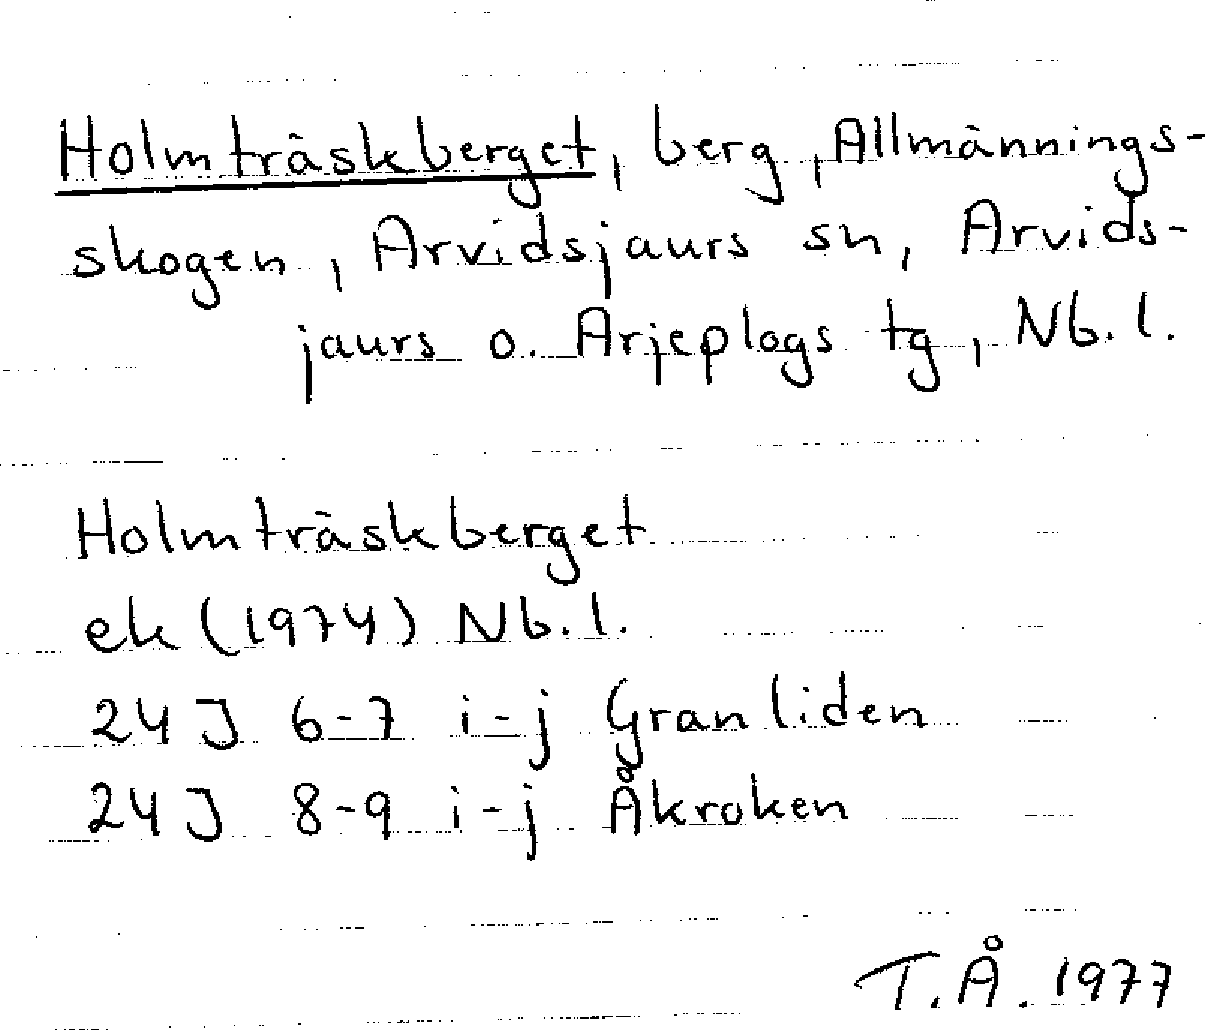 Holmträskberget, berg, Allmännings-
skogen, Arvidsjaurs sn, Arvids-
jaurs o. Arjeplogs tg, Nb. l.
Holmträskberget
ek (1974) Nb. l.
24 J 6-7 i-j Granliden
24 J 8-9 i-j Åkroken
T. Å. 1977